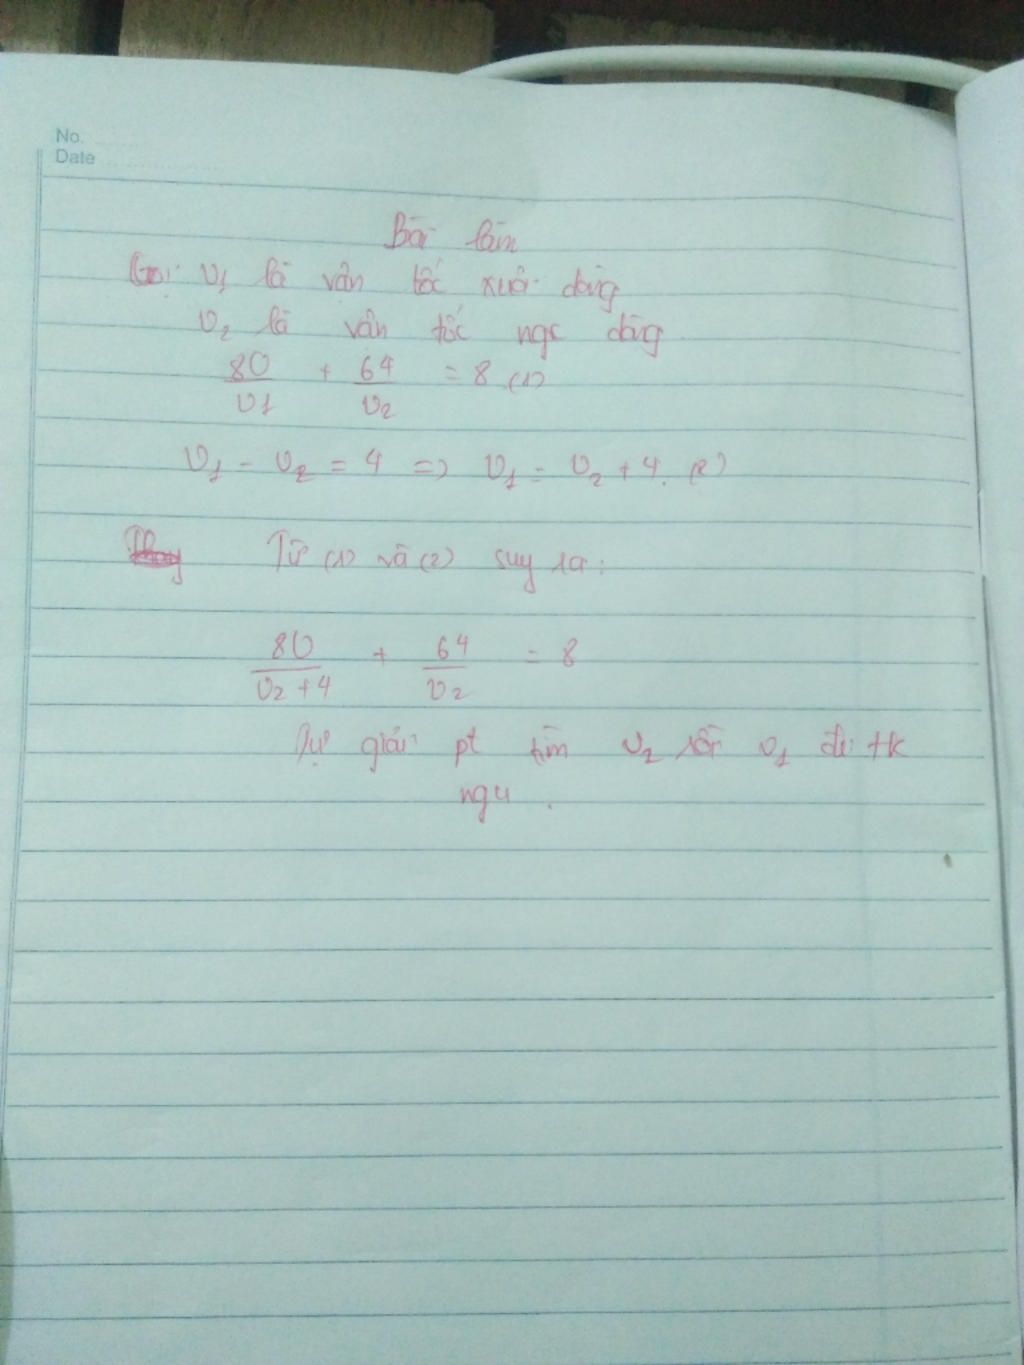 No.
Date
Bài làm
Gọi v1 là vận tốc xuôi dòng
v2 là vận tốc ngc dòng
80/v1 + 64/v2 = 8 (1)
v1 - v2 = 4 => v1 = v2 + 4. (2)
Từ (1) và (2) suy ra:
80/v2+4 + 64/v2 = 8
Tự giải pt tìm v2 rồi v1 đi tk
ngu.